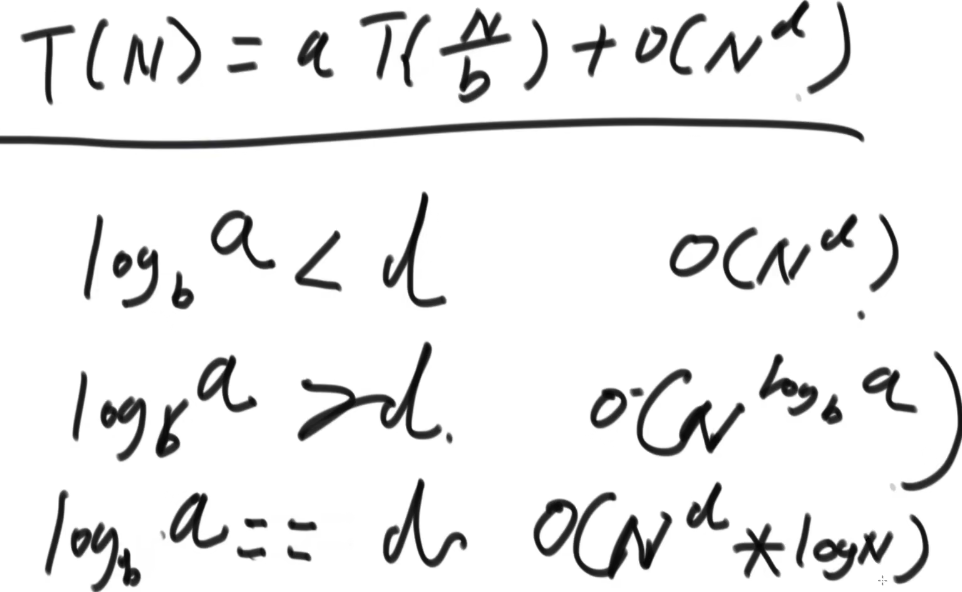 T(N) = a T(N/b) + O(N^d)
log_b a < d O(N^d)
log_b a > d. O(N^(log_b a))
log_b a == d O(N^d * logN)